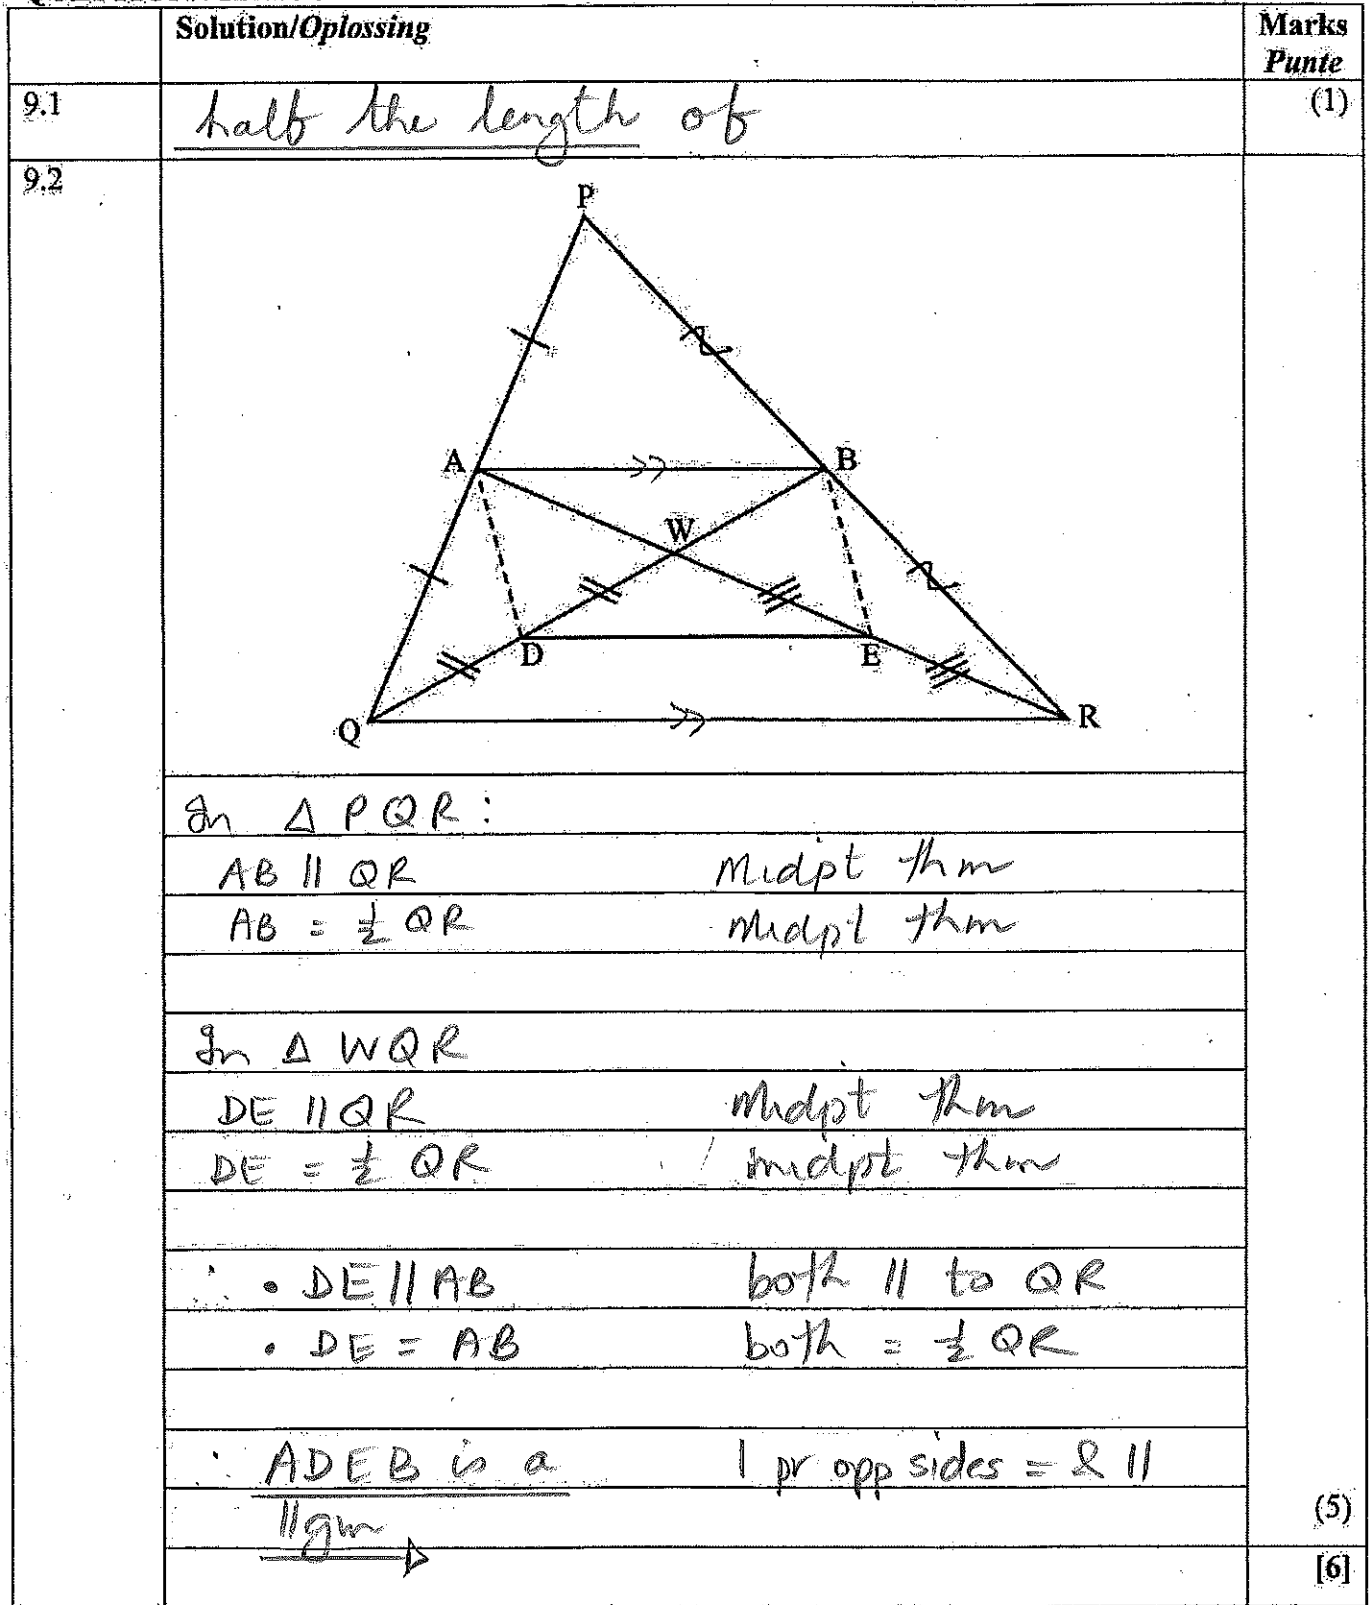 Solution/Oplossing Marks
Punte
9.1 half the length of (1)
9.2
P
A B
W
D E
Q R
In Δ PQR :
AB || QR Midpt thm
AB = ½ QR midpt thm
In Δ WQR
DE || QR Midpt thm
DE = ½ QR midpt thm
∴ • DE || AB both || to QR
• DE = AB both = ½ QR
∴ ADEB is a 1 pr opp sides = & ||
||gm (5)
[6]